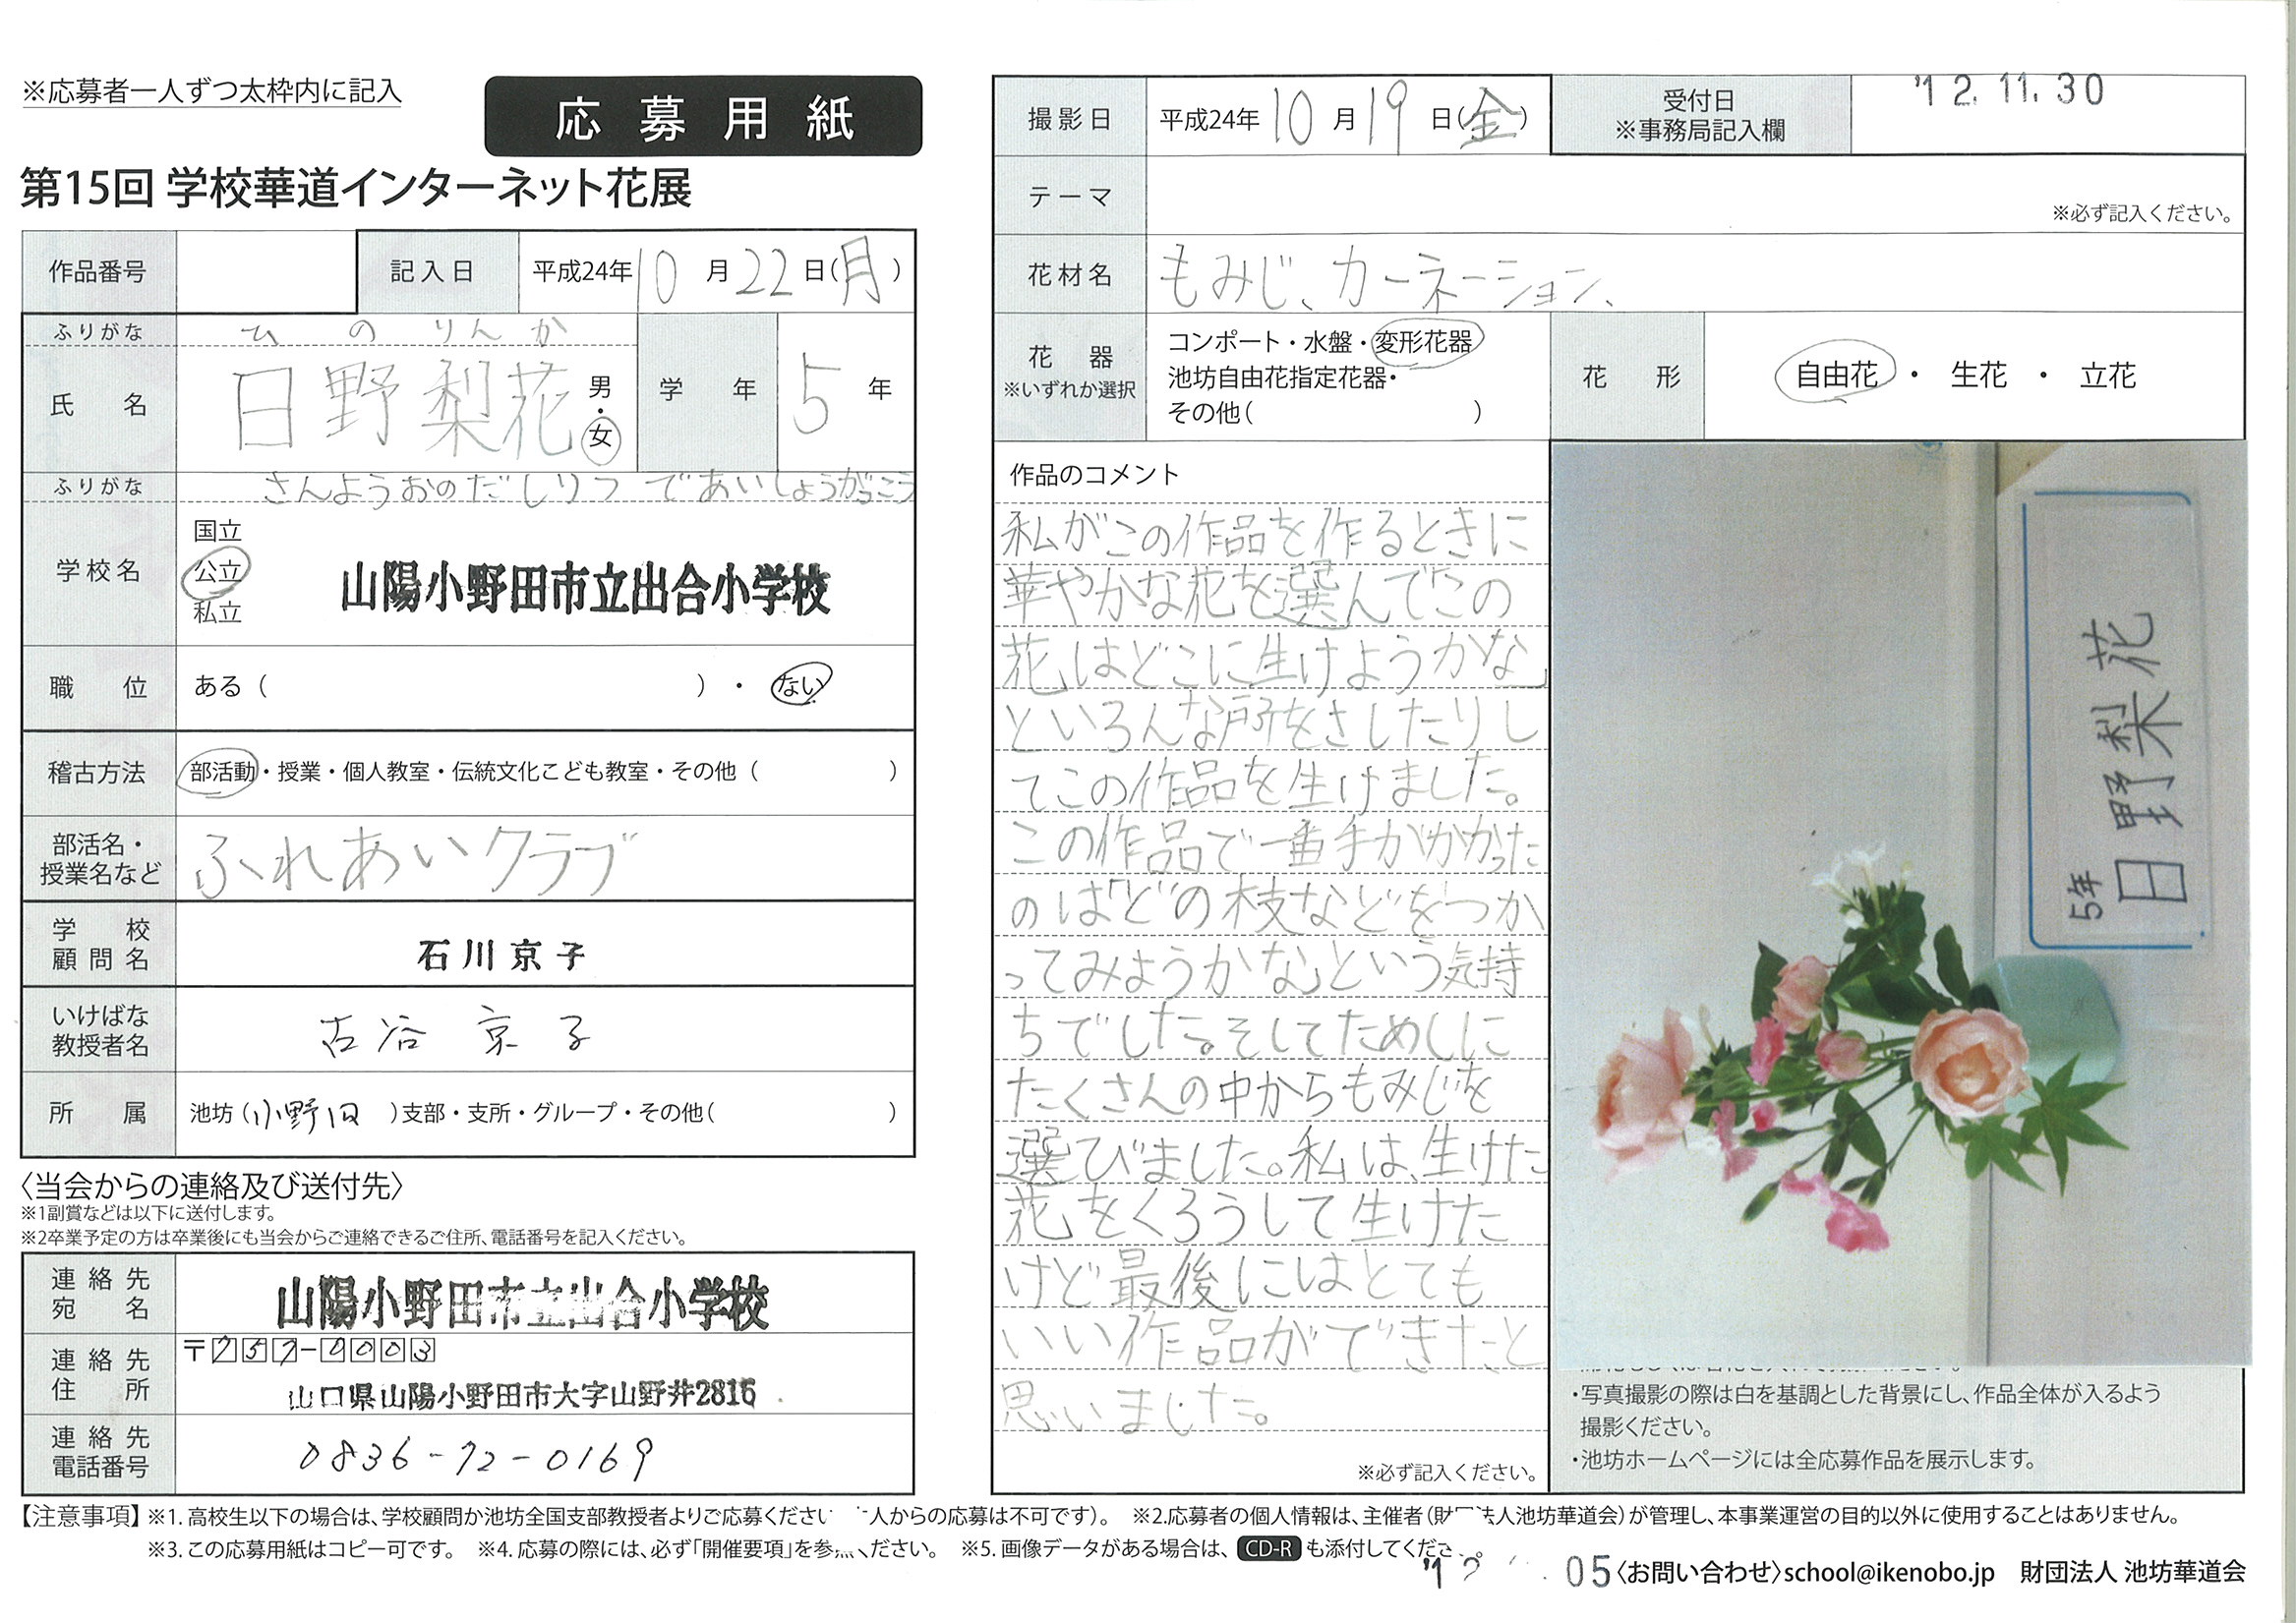 ※応募者一人ずつ太枠内に記入
応募用紙
第15回 学校華道インターネット花展
作品番号
記入日 平成24年10月22日(月)
ふりがな ひのりんか
氏名 日野梨花 男・女
学年 5年
ふりがな さんようおのだしりつ であいしょうがっこう
学校名 国立 公立 私立
山陽小野田市立出合小学校
職位 ある( )・ない
稽古方法 部活動・授業・個人教室・伝統文化こども教室・その他( )
部活名・授業名など ふれあいクラブ
学校顧問名 石川京子
いけばな教授者名 古谷 京子
所属 池坊(小野田 )支部・支所・グループ・その他( )
〈当会からの連絡及び送付先〉
※1副賞などは以下に送付します。
※2卒業予定の方は卒業後にも当会からご連絡できるご住所、電話番号を記入ください。
連絡先宛名 山陽小野田市立出合小学校
連絡先住所 〒757-0003
山口県山陽小野田市大字山野井2816
連絡先電話番号 0836-72-0169
撮影日 平成24年10月19日(金)
受付日 ※事務局記入欄 '12.11.30
テーマ ※必ず記入ください。
花材名 もみじ、カーネーション、
花器 ※いずれか選択
コンポート・水盤・変形花器
池坊自由花指定花器・
その他( )
花形 自由花・生花・立花
作品のコメント
私がこの作品を作るときに
華やかな花を選んで「この
花はどこに生けようかな」
といろんな所をさしたりし
てこの作品を生けました。
この作品で一番手がかかった
のは「どの枝などをつか
ってみようかな」という気持
ちでした。そしてためしに
たくさんの中からもみじを
選びました。私は、生けた
花をくろうして生けた
けど最後にはとても
いい作品ができたと
思いました。
※必ず記入ください。
5年
日野梨花
・写真撮影の際は白を基調とした背景にし、作品全体が入るよう
撮影ください。
・池坊ホームページには全応募作品を展示します。
【注意事項】※1.高校生以下の場合は、学校顧問か池坊全国支部教授者よりご応募ください 人からの応募は不可です)。 ※2.応募者の個人情報は、主催者(財 法人池坊華道会)が管理し、本事業運営の目的以外に使用することはありません。
※3.この応募用紙はコピー可です。 ※4.応募の際には、必ず「開催要項」を参 ください。 ※5.画像データがある場合は、CD-Rも添付してくださ
05 〈お問い合わせ〉school@ikenobo.jp 財団法人 池坊華道会